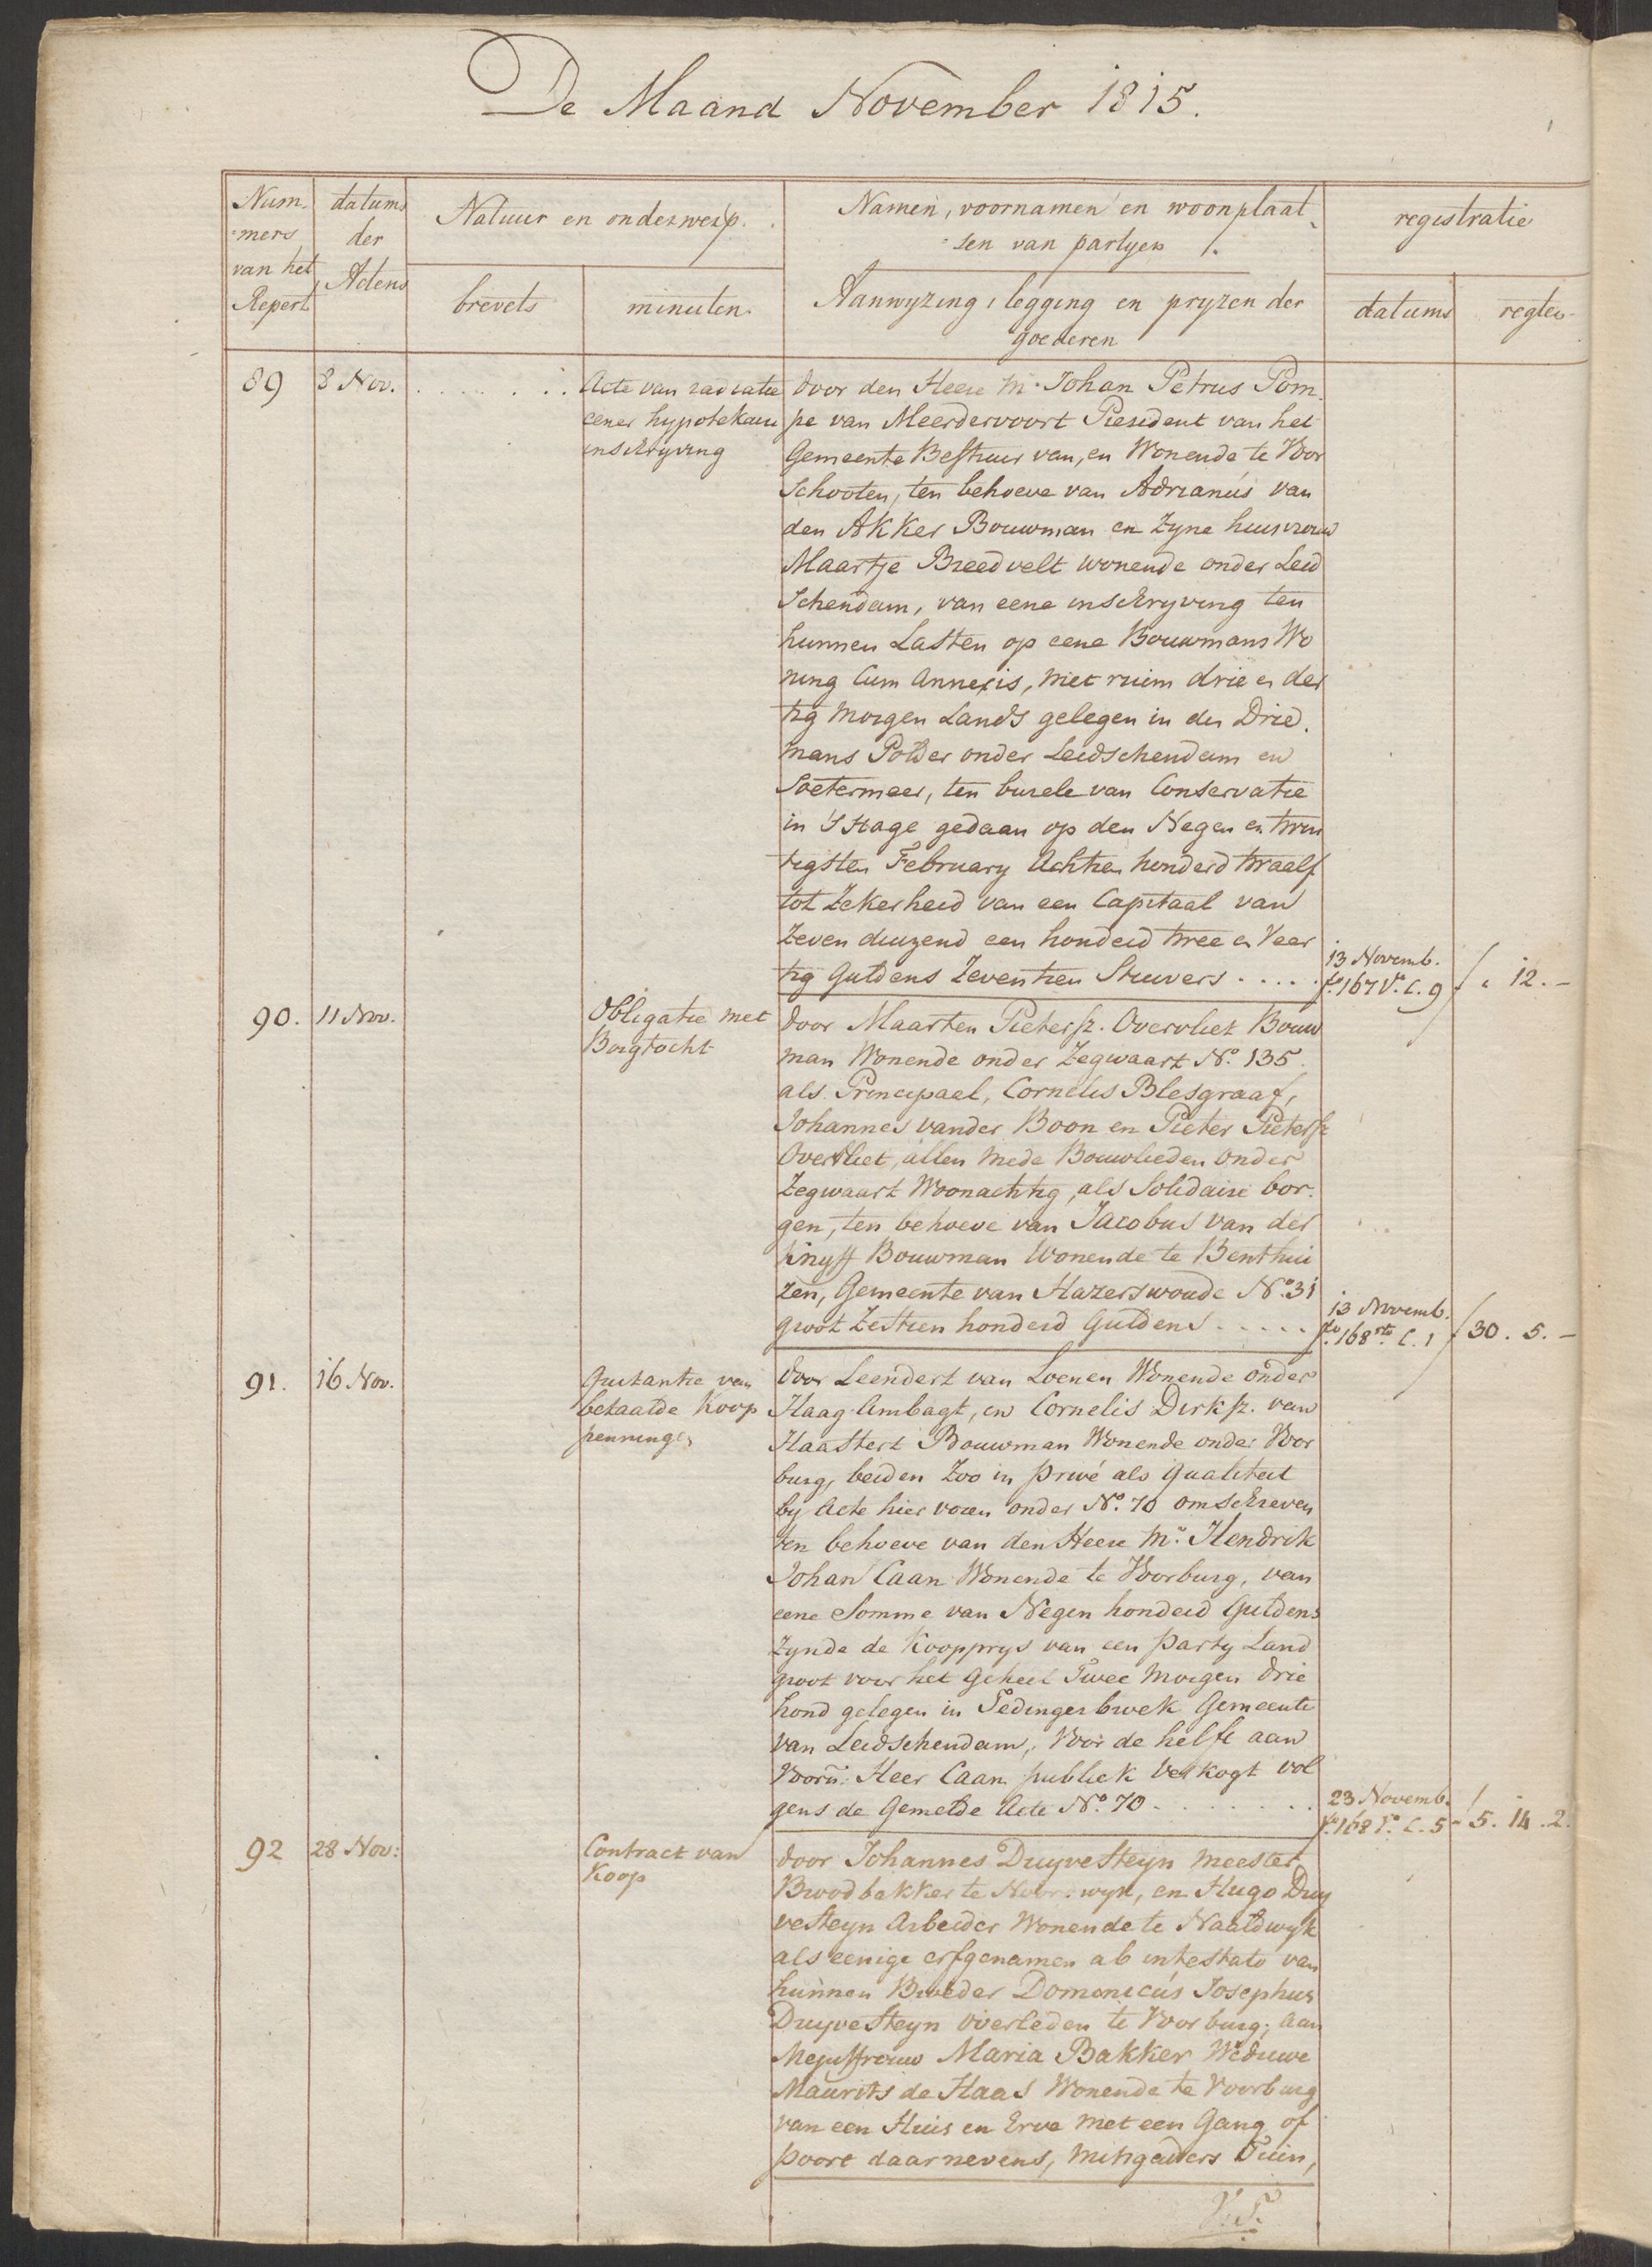 De Maand November 1815.
Num-
=mers
van het
Repert.
datums
der
Actens
Natuur en onderwerp.
brevets
minuten.
Namen, voornamen en woonplaat-
=sen van partyen
Aanwyzing, legging en pryzen der
goederen
registratie
datums
regten
89 8 Nov.
Acte van radiatie
eener hypotekaire
inschryving
door den Heere Mr. Johan Petrus Pom-
pe van Meerdervoort President van het
Gemeente Bestuur van, en Wonende te Voor
Schooten, ten behoeve van Adrianus van
den Akker Bouwman en Zyne huisvrouw
Maartje Breedvelt wonende onder Leid
Schendam, van eene inschryving ten
hunnen Lasten op eene Bouwmans Wo
ning Cum Annexis, met ruim drie en der
tig Morgen Lands gelegen in den Drie.
mans Polder onder Leidschendam en
Soetermeer, ten burele van Conservatie
in 'S Hage gedaan op den Negen en twin
tigsten February Achtien honderd twaalf
tot Zekerheid van een Capitaal van
Zeven duizend een honderd twee en Veer
tig Guldens Zeventien Stuivers . . . .
13 Novemb.
fo. 167 Vo. C. 9
ƒ " 12. -
90. 11 Nov.
Obligatie met
Borgtocht
door Maarten Pietersz. Overvliet Bouw
man Wonende onder Zegwaart No. 135.
als Principaal, Cornelis Blesgraaf,
Johannes vander Boon en Pieter Pietersz
Overvliet, allen mede Bouwlieden onder
Zegwaart Woonachtig, als Solidaire bor-
gen, ten behoeve van Jacobus van der
Knyff Bouwman Wonende te Benthui
zen, Gemeente van Hazerswoude No. 31
groot Zestien honderd Guldens . . . . .
13 Novemb.
fo. 168 rto. C. 1
ƒ 30. 5. -
91. 16 Nov.
Quitantie van
betaalde Koop
penningen
door Leendert van Loenen Wonende onder
Haag-Ambagt, en Cornelis Dirksz. van
Haastert Bouwman Wonende onder Voor
burg, beiden Zoo in privé als Qualiteit
by Acte hier voren onder No. 70 omschreven
ten behoeve van den Heere Mr. Hendrik
Johan Caan Wonende te Voorburg, van
eene Somme van Negen honderd Guldens
Zynde de Koopprys van een Party Land
groot voor het Geheel Twee Morgen drie
hond gelegen in Tedingerbroek Gemeente
van Leidschendam, Voor de helft aan
Voorn. Heer Caan publiek Verkogt vol
gens de Gemelde Acte No. 70 . . . . . .
23 Novemb.
fo. 168 Vo. C. 5
ƒ 5. 14. 2.
92 28 Nov:
Contract van
Koop
door Johannes Duyvesteyn Meester
Broodbakker te Noordwyk, en Hugo Duy
vesteyn Arbeider Wonende te Naaldwyk
als eenige erfgenamen ab intestato van
hunnen Broeder Domenicus Josephus
Duyvesteyn overleden te Voorburg; aan
Mejuffrouw Maria Bakker Weduwe
Maurits de Haas Wonende te Voorburg
van een Huis en Erve met een Gang of
Poort daarnevens, mitsgaders Tuin,